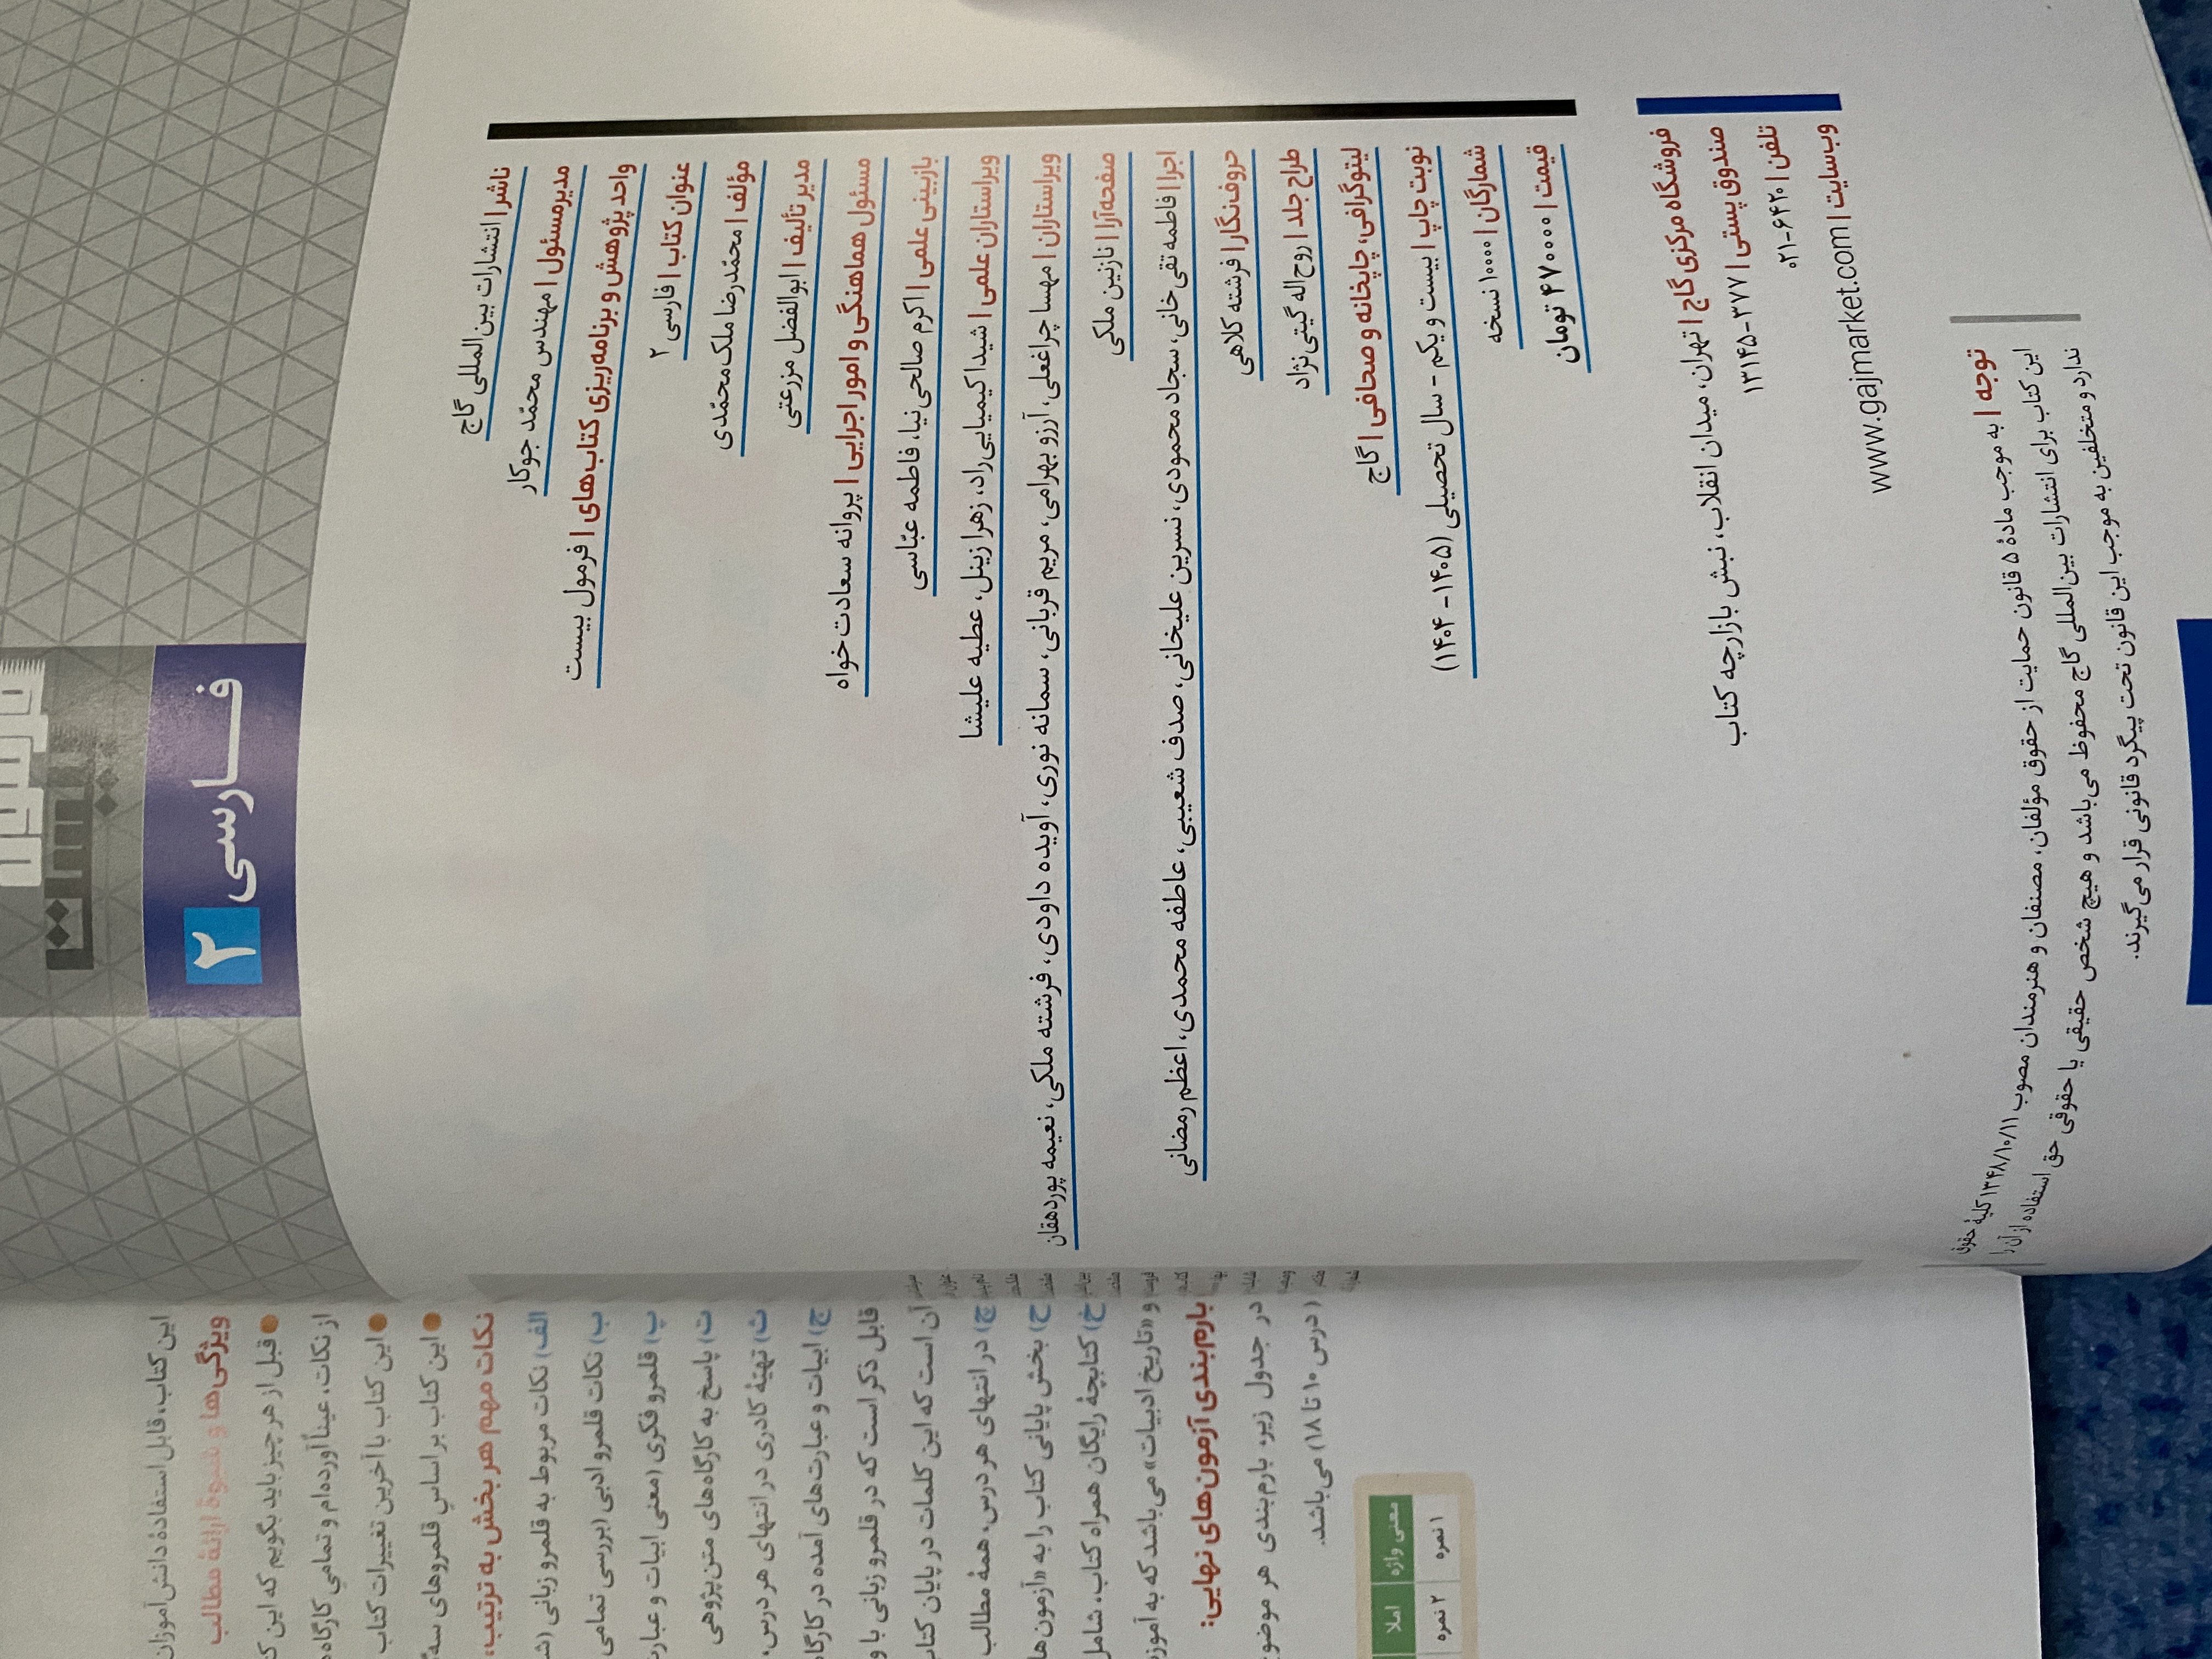 فارسی ۲
ناشر | انتشارات بین‌المللی گاج
مدیرمسئول | مهندس محمّد جوکار
واحد پژوهش و برنامه‌ریزی کتاب‌های | فرمول بیست
عنوان کتاب | فارسی ۲
مؤلف | محمّدرضا ملک‌محمّدی
مدیر تألیف | ابوالفضل مزرعتی
مسئول هماهنگی و امور اجرایی | پروانه سعادت‌خواه
بازبینی علمی | اکرم صالحی‌نیا، فاطمه عبّاسی
ویراستاران علمی | شیدا کیمیایی‌راد، زهرا زینل، عطیه علیشا
ویراستاران | مهسا چراغعلی، آرزو بهرامی، مریم قربانی، سمانه نوری، آویده داودی، فرشته ملکی، نعیمه پوردهقان
صفحه‌آرا | نازنین ملکی
اجرا | فاطمه تقی‌خانی، سجاد محمودی، نسرین علیخانی، صدف شعیبی، عاطفه محمدی، اعظم رمضانی
حروف‌نگار | فرشته کلاهی
طراح جلد | روح‌اله گیتی‌نژاد
لیتوگرافی، چاپخانه و صحافی | گاج
نوبت چاپ | بیست و یکم - سال تحصیلی (۱۴۰۵-۱۴۰۴)
شمارگان | ۱۰۰۰۰ نسخه
قیمت | ۴۷۰۰۰۰ تومان
فروشگاه مرکزی گاج | تهران، میدان انقلاب، نبش بازارچه کتاب
صندوق پستی | ۳۷۷-۱۳۱۴۵
تلفن | ۶۴۲۰-۰۲۱
وب‌سایت | www.gajmarket.com
توجه | به موجب مادهٔ ۵ قانون حمایت از حقوق مؤلفان، مصنفان و هنرمندان مصوب ۱۳۴۸/۱۰/۱۱ کلیهٔ حقوق
این کتاب برای انتشارات بین‌المللی گاج محفوظ می‌باشد و هیچ شخص حقیقی یا حقوقی حق استفاده از آن را
ندارد و متخلفین به موجب این قانون تحت پیگرد قانونی قرار می‌گیرند.
این کتاب، قابل استفادهٔ دانش‌آموزان
ویژگی‌ها و شیوهٔ ارائهٔ مطالب
قبل از هر چیز باید بگویم که این
از نکات، عیناً آورده‌ام و تمامی کارگاه
این کتاب با آخرین تغییرات کتاب
این کتاب بر اساس قلمروهای
نکات مهم هر بخش به ترتیب،
الف) نکات مربوط به قلمرو زبانی
ب) نکات قلمرو ادبی (بررسی تمامی
پ) قلمرو فکری (معنی ابیات و
ت) پاسخ به کارگاه‌های متن‌پژوهی
ث) تهیّهٔ کادری در انتهای هر درس،
ج) ابیات و عبارت‌های آمده در
قابل ذکر است که در قلمرو زبانی با
آن است که این کلمات در پایان
چ) در انتهای هر درس، همهٔ مطالب
ح) بخش پایانی کتاب را به «آزمون‌
خ) کتابچهٔ رایگان همراه کتاب، شامل
و «تاریخ ادبیات» می‌باشد که به
بارم‌بندی آزمون‌های نهایی:
در جدول زیر، بارم‌بندی هر
(درس ۱۰ تا ۱۸) می‌باشد.
معنی واژه املا
۱ نمره ۲ نمره